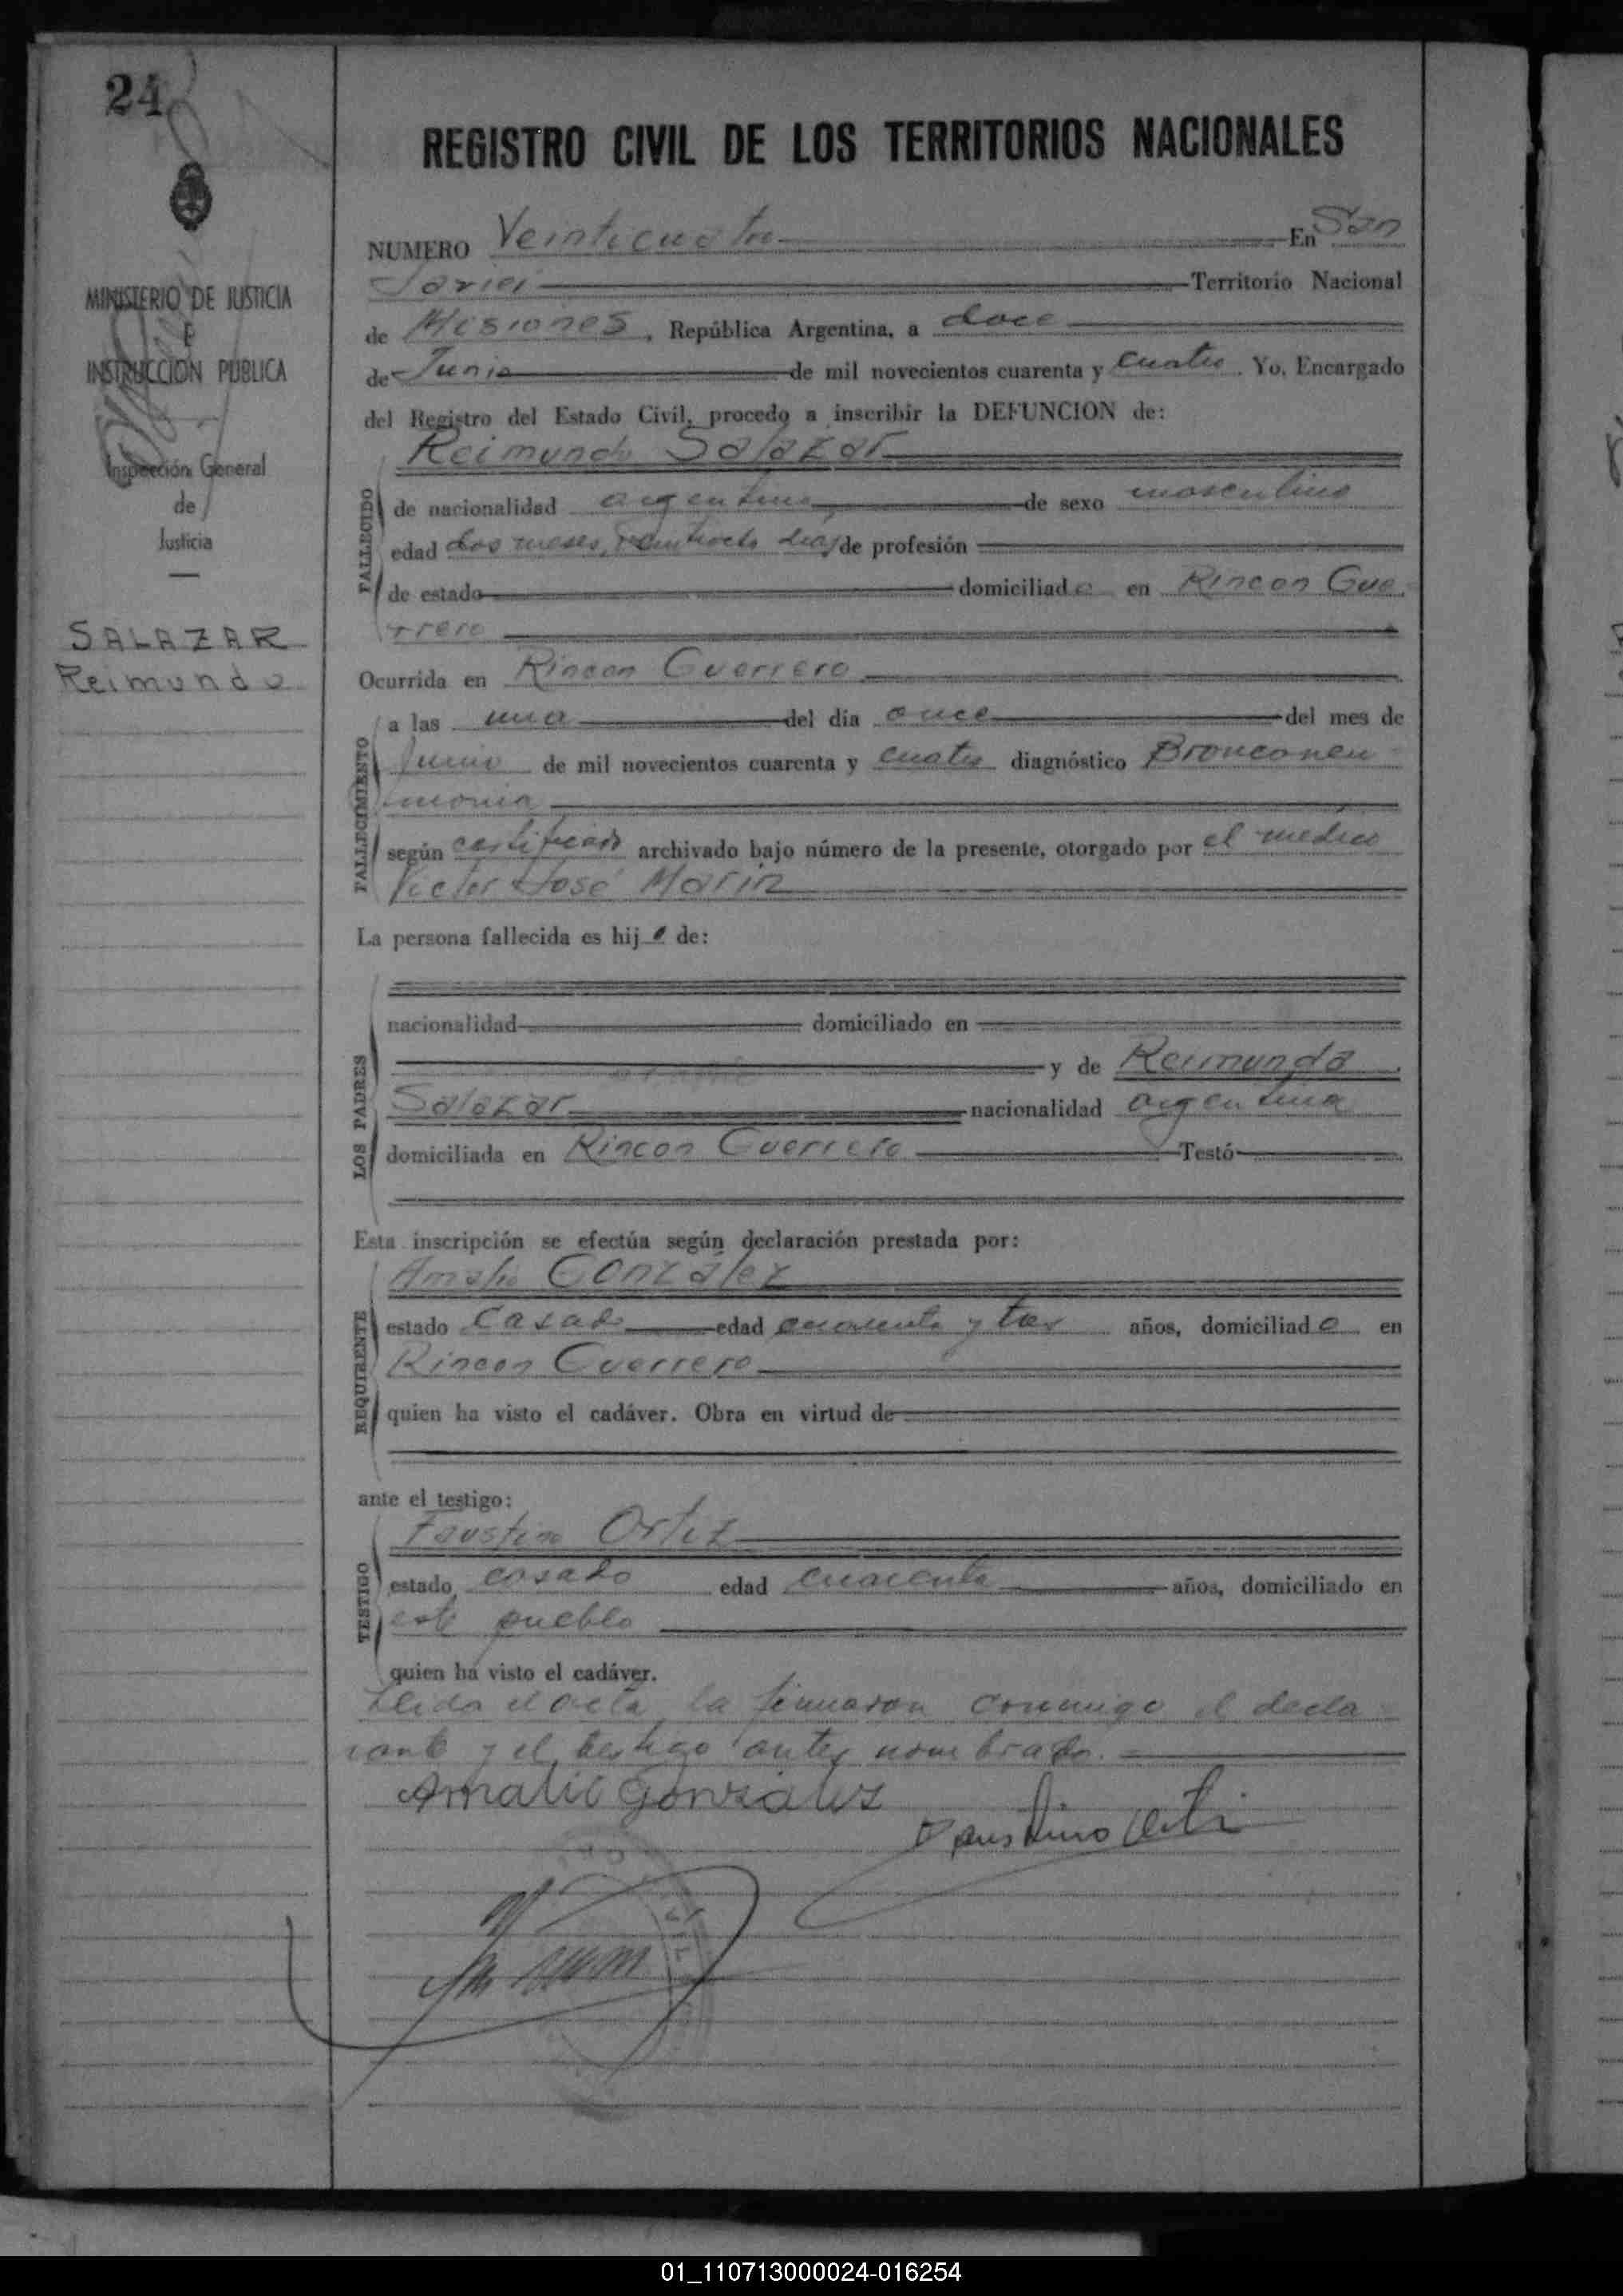 24
MINISTERIO DE JUSTICIA
E
INSTRUCCION PUBLICA
Inspección General
de
Justicia
SALAZAR
Reimundo
REGISTRO CIVIL DE LOS TERRITORIOS NACIONALES
NUMERO Veinticuatro En San
Javier Territorio Nacional
de Misiones, República Argentina, a doce
de Junio de mil novecientos cuarenta y cuatro. Yo, Encargado
del Registro del Estado Civil, procedo a inscribir la DEFUNCION de:
Reimundo Salazar
FALLECIDO
de nacionalidad argentina de sexo masculino
edad dos meses, días de profesión
de estado domiciliado en Rincon Gue
rrero
Ocurrida en Rincon Guerrero
FALLECIMIENTO
a las una del día once del mes de
Junio de mil novecientos cuarenta y cuatro diagnóstico Bronconeu=
monia
según certificado archivado bajo número de la presente, otorgado por el médico
Victor José Marin
La persona fallecida es hijo de:
LOS PADRES
nacionalidad domiciliado en
y de Reimunda
Salazar nacionalidad argentina
domiciliada en Rincon Guerrero Testó
Esta inscripción se efectúa según declaración prestada por:
Amalio González
REQUIRENTE
estado Casado edad cuarenta y tres años, domiciliado en
Rincon Guerrero
quien ha visto el cadáver. Obra en virtud de
ante el testigo:
Faustino Ortiz
TESTIGO
estado casado edad cuarenta años, domiciliado en
este pueblo
quien ha visto el cadáver.
Leida el acta la firmaron conmigo el decla=
rante y el testigo antes nombrado.=
Amalio Gonzalez
Faustino Orti
01_110713000024-016254